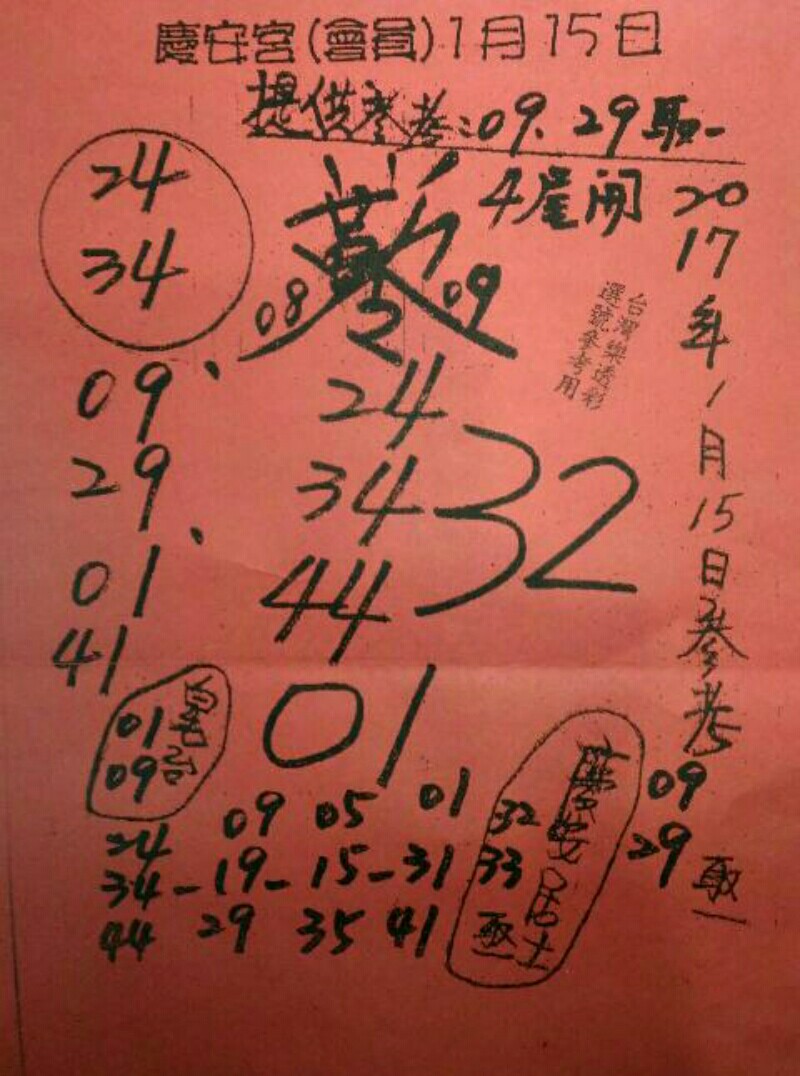 慶安宮(會員)1月15日
提供參考:09、29取一
4尾開
2017年1月15日參考
台灣樂透彩
選號參考用
24
34
08 09
2
09、
29
01、
41
24
34
44
32
01
01
09
09 05 01 32
24
34-19-15-31 33
44 29 35 41 取一
慶安居士
09
29 取一